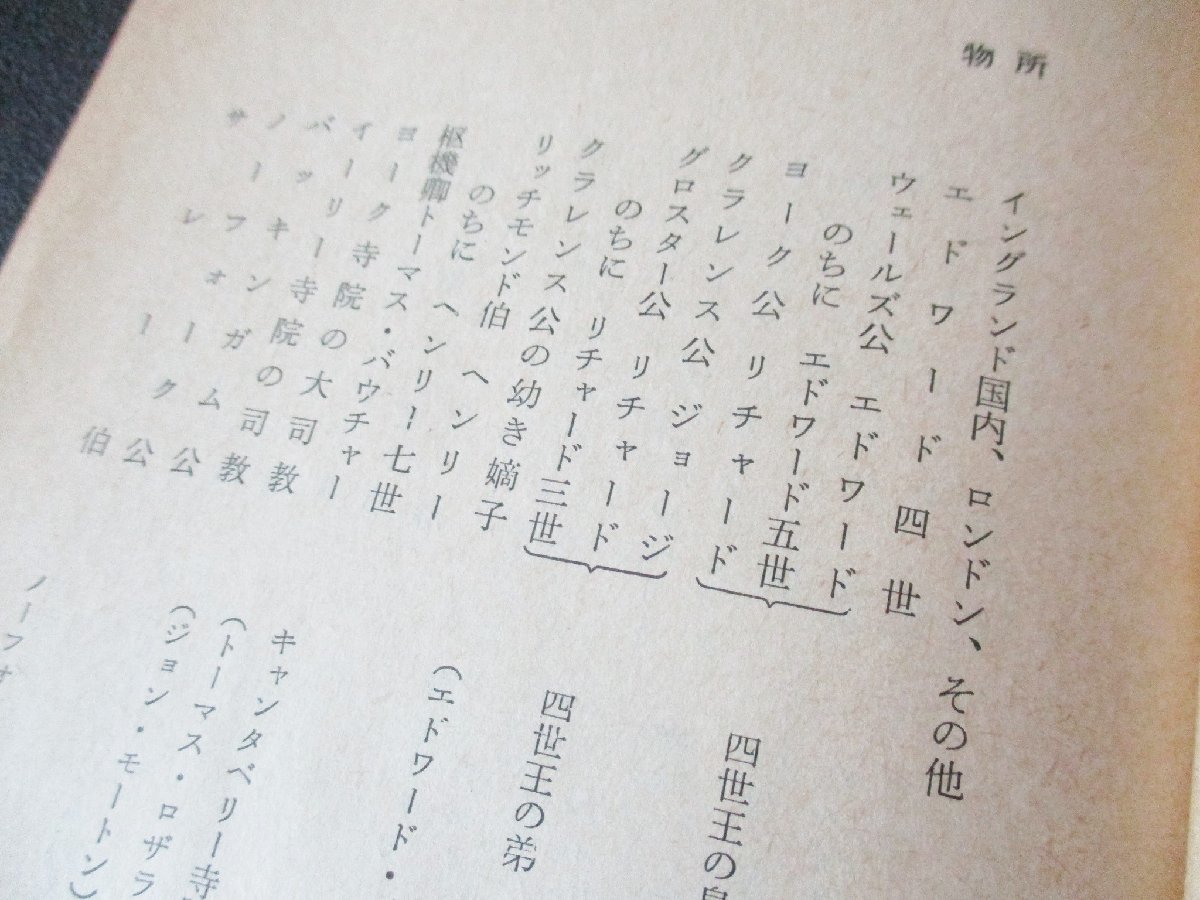 所
イングランド国内、ロンドン、その他
物
エドワード四世
ウェールズ公 エドワード
のちに エドワード五世
ヨーク公 リチャード
四世王の
クラレンス公 ジョージ
グロスター公 リチャード
のちに リチャード三世
四世王の弟
クラレンス公の幼き嫡子 (エドワード・
リッチモンド伯 ヘンリー
のちに ヘンリー七世
枢機卿トーマス・バウチャー キャンタベリー寺
ヨーク寺院の大司教 (トーマス・ロザラ
イーリー寺院の司教 (ジョン・モートン)
バッキンガム公
ノーフォーク公
サーレー伯 ノーフォ